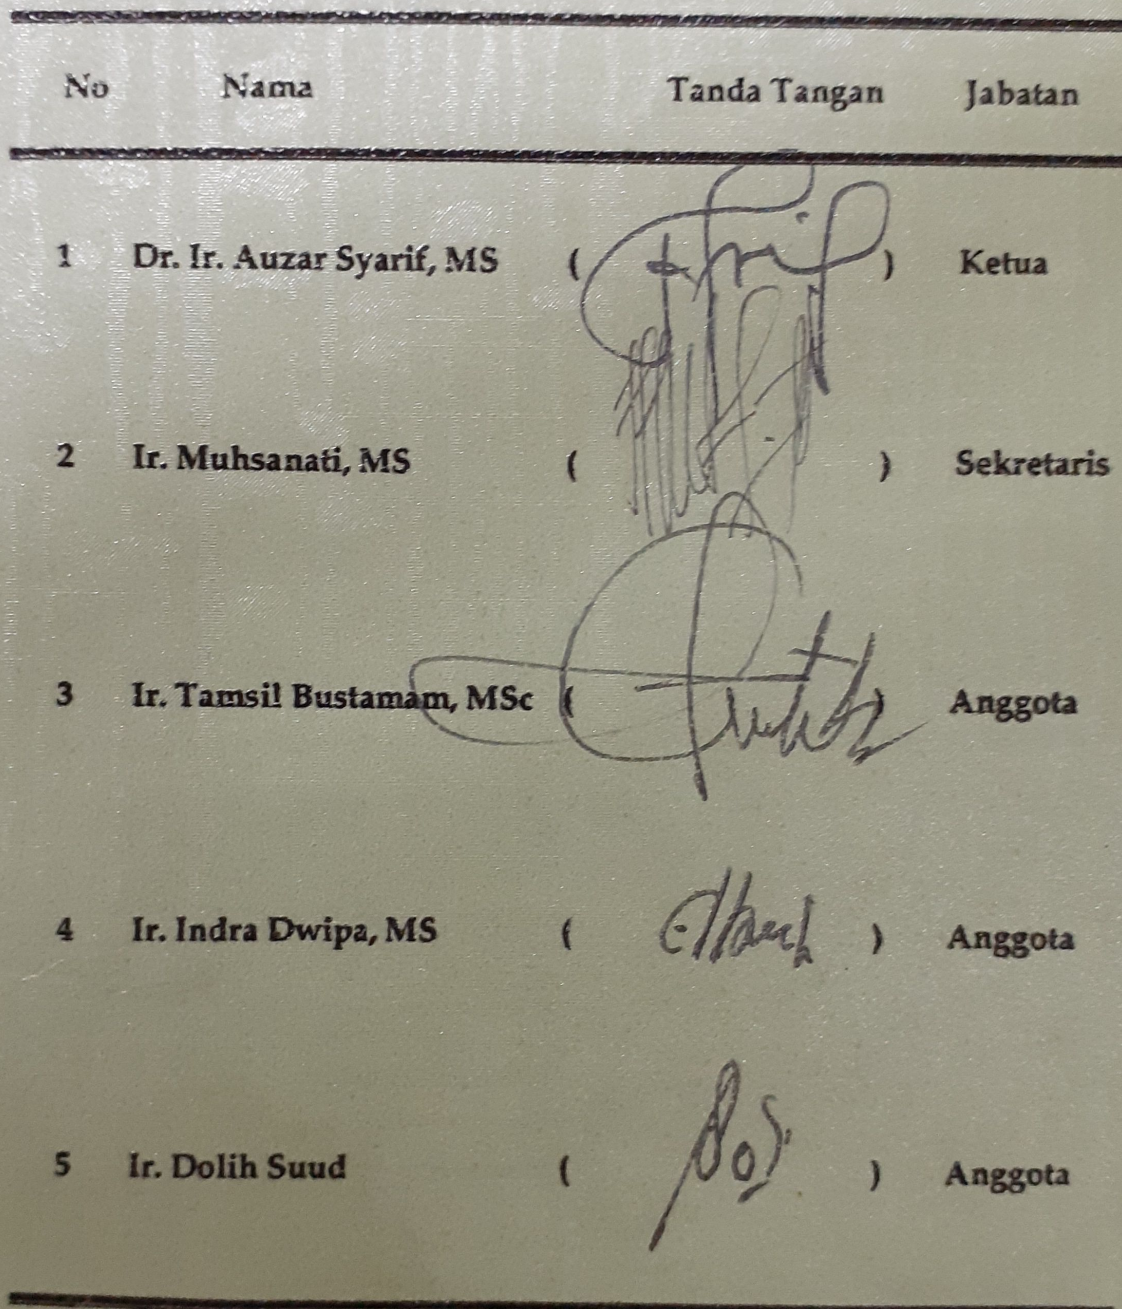 No Nama Tanda Tangan Jabatan
1 Dr. Ir. Auzar Syarif, MS ( ) Ketua
2 Ir. Muhsanati, MS ( ) Sekretaris
3 Ir. Tamsil Bustamam, MSc ( ) Anggota
4 Ir. Indra Dwipa, MS ( ) Anggota
5 Ir. Dolih Suud ( ) Anggota